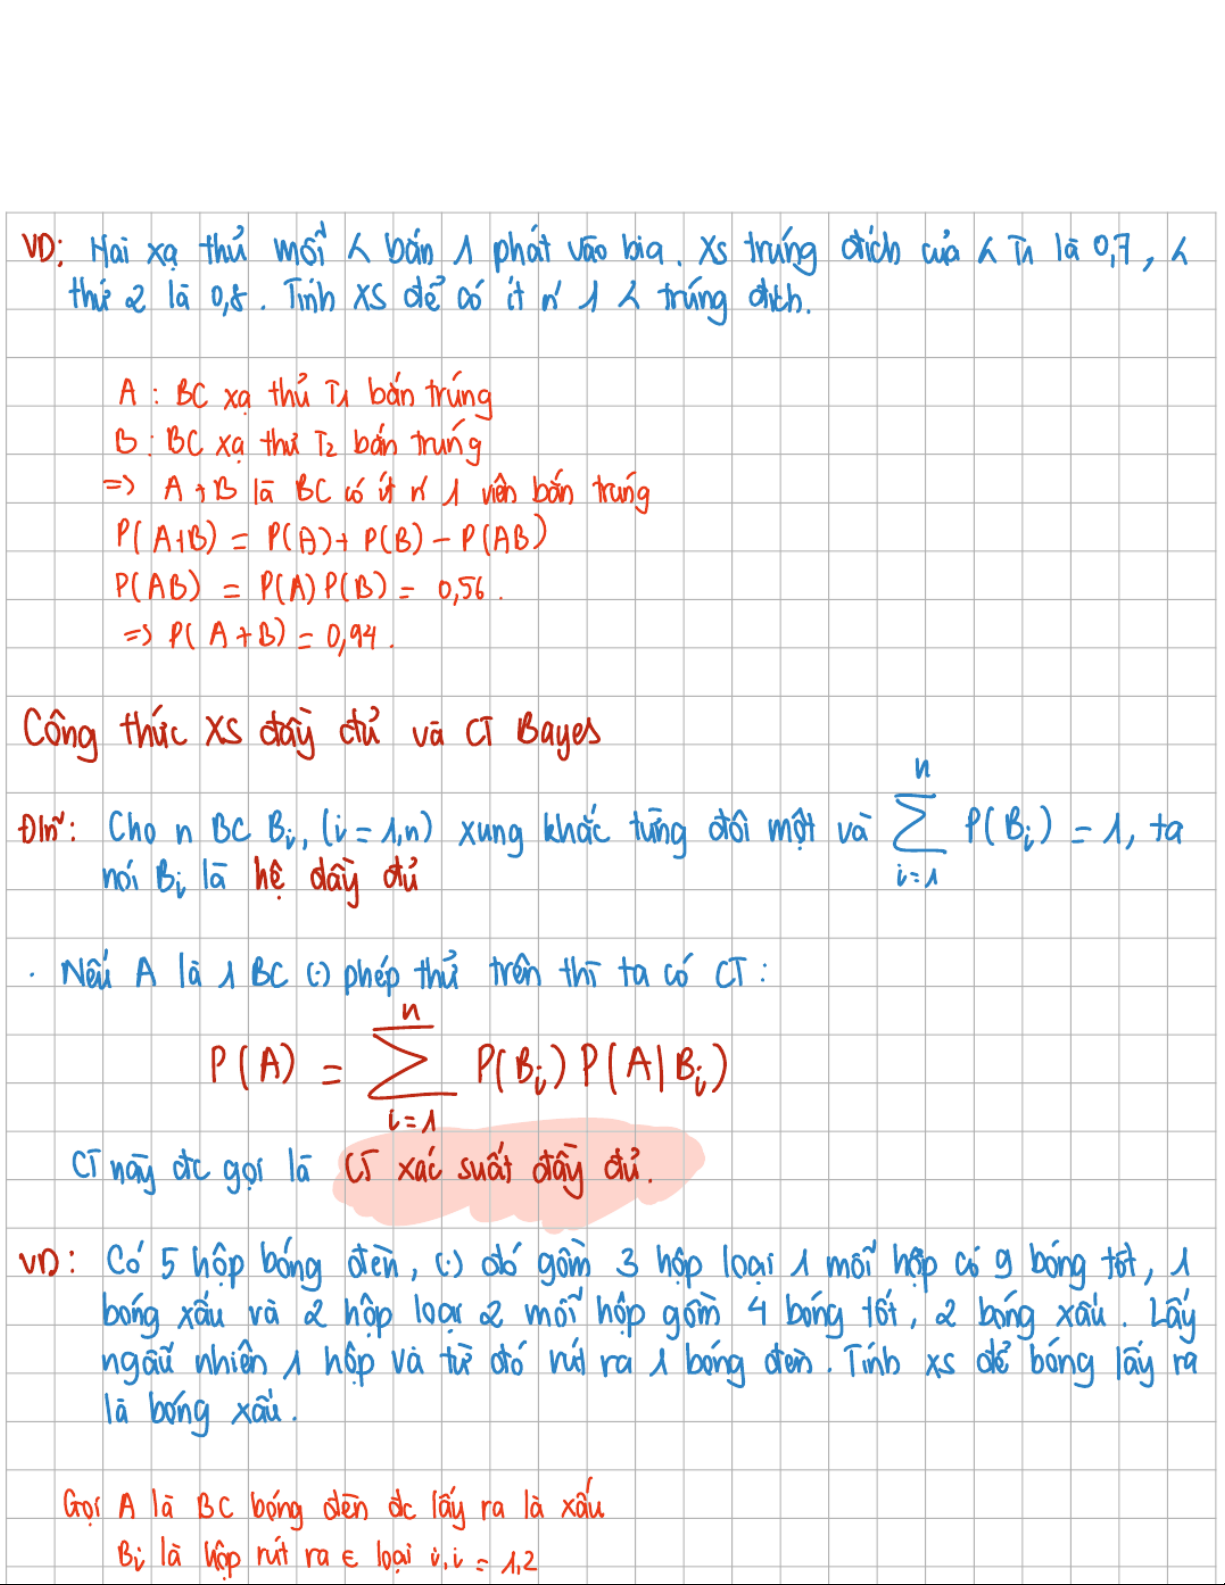 VD: Hai xạ thủ mỗi < bắn 1 phát vào bia. XS trúng đích của < T1 là 0,7, <
thứ 2 là 0,8. Tính XS để có ít n' 1 < trúng đích.
A : BC xạ thủ T1 bắn trúng
B : BC xạ thủ T2 bắn trúng
=> A+B là BC có ít n' 1 viên bắn trúng
P(A+B) = P(A)+ P(B) - P(AB)
P(AB) = P(A)P(B) = 0,56.
=> P(A+B) = 0,94.
Công thức XS đầy đủ và CT Bayes
Đ/n~: Cho n BC Bi, (i=1,n) xung khắc từng đôi một và ∑_{i=1}^{n} P(Bi) = 1, ta
nói Bi là hệ đầy đủ
. Nếu A là 1 BC (·) phép thử trên thì ta có CT:
P(A) = ∑_{i=1}^{n} P(Bi)P(A|Bi)
CT này đc gọi là CT xác suất đầy đủ.
VD: Có 5 hộp bóng đèn, (·) đó gồm 3 hộp loại 1 mỗi hộp có 9 bóng tốt, 1
bóng xấu và 2 hộp loại 2 mỗi hộp gồm 4 bóng tốt, 2 bóng xấu. Lấy
ngẫu nhiên 1 hộp và từ đó rút ra 1 bóng đèn. Tính xs để bóng lấy ra
là bóng xấu.
Gọi A là BC bóng đèn đc lấy ra là xấu
Bi là hộp rút ra ∈ loại i, i = 1,2